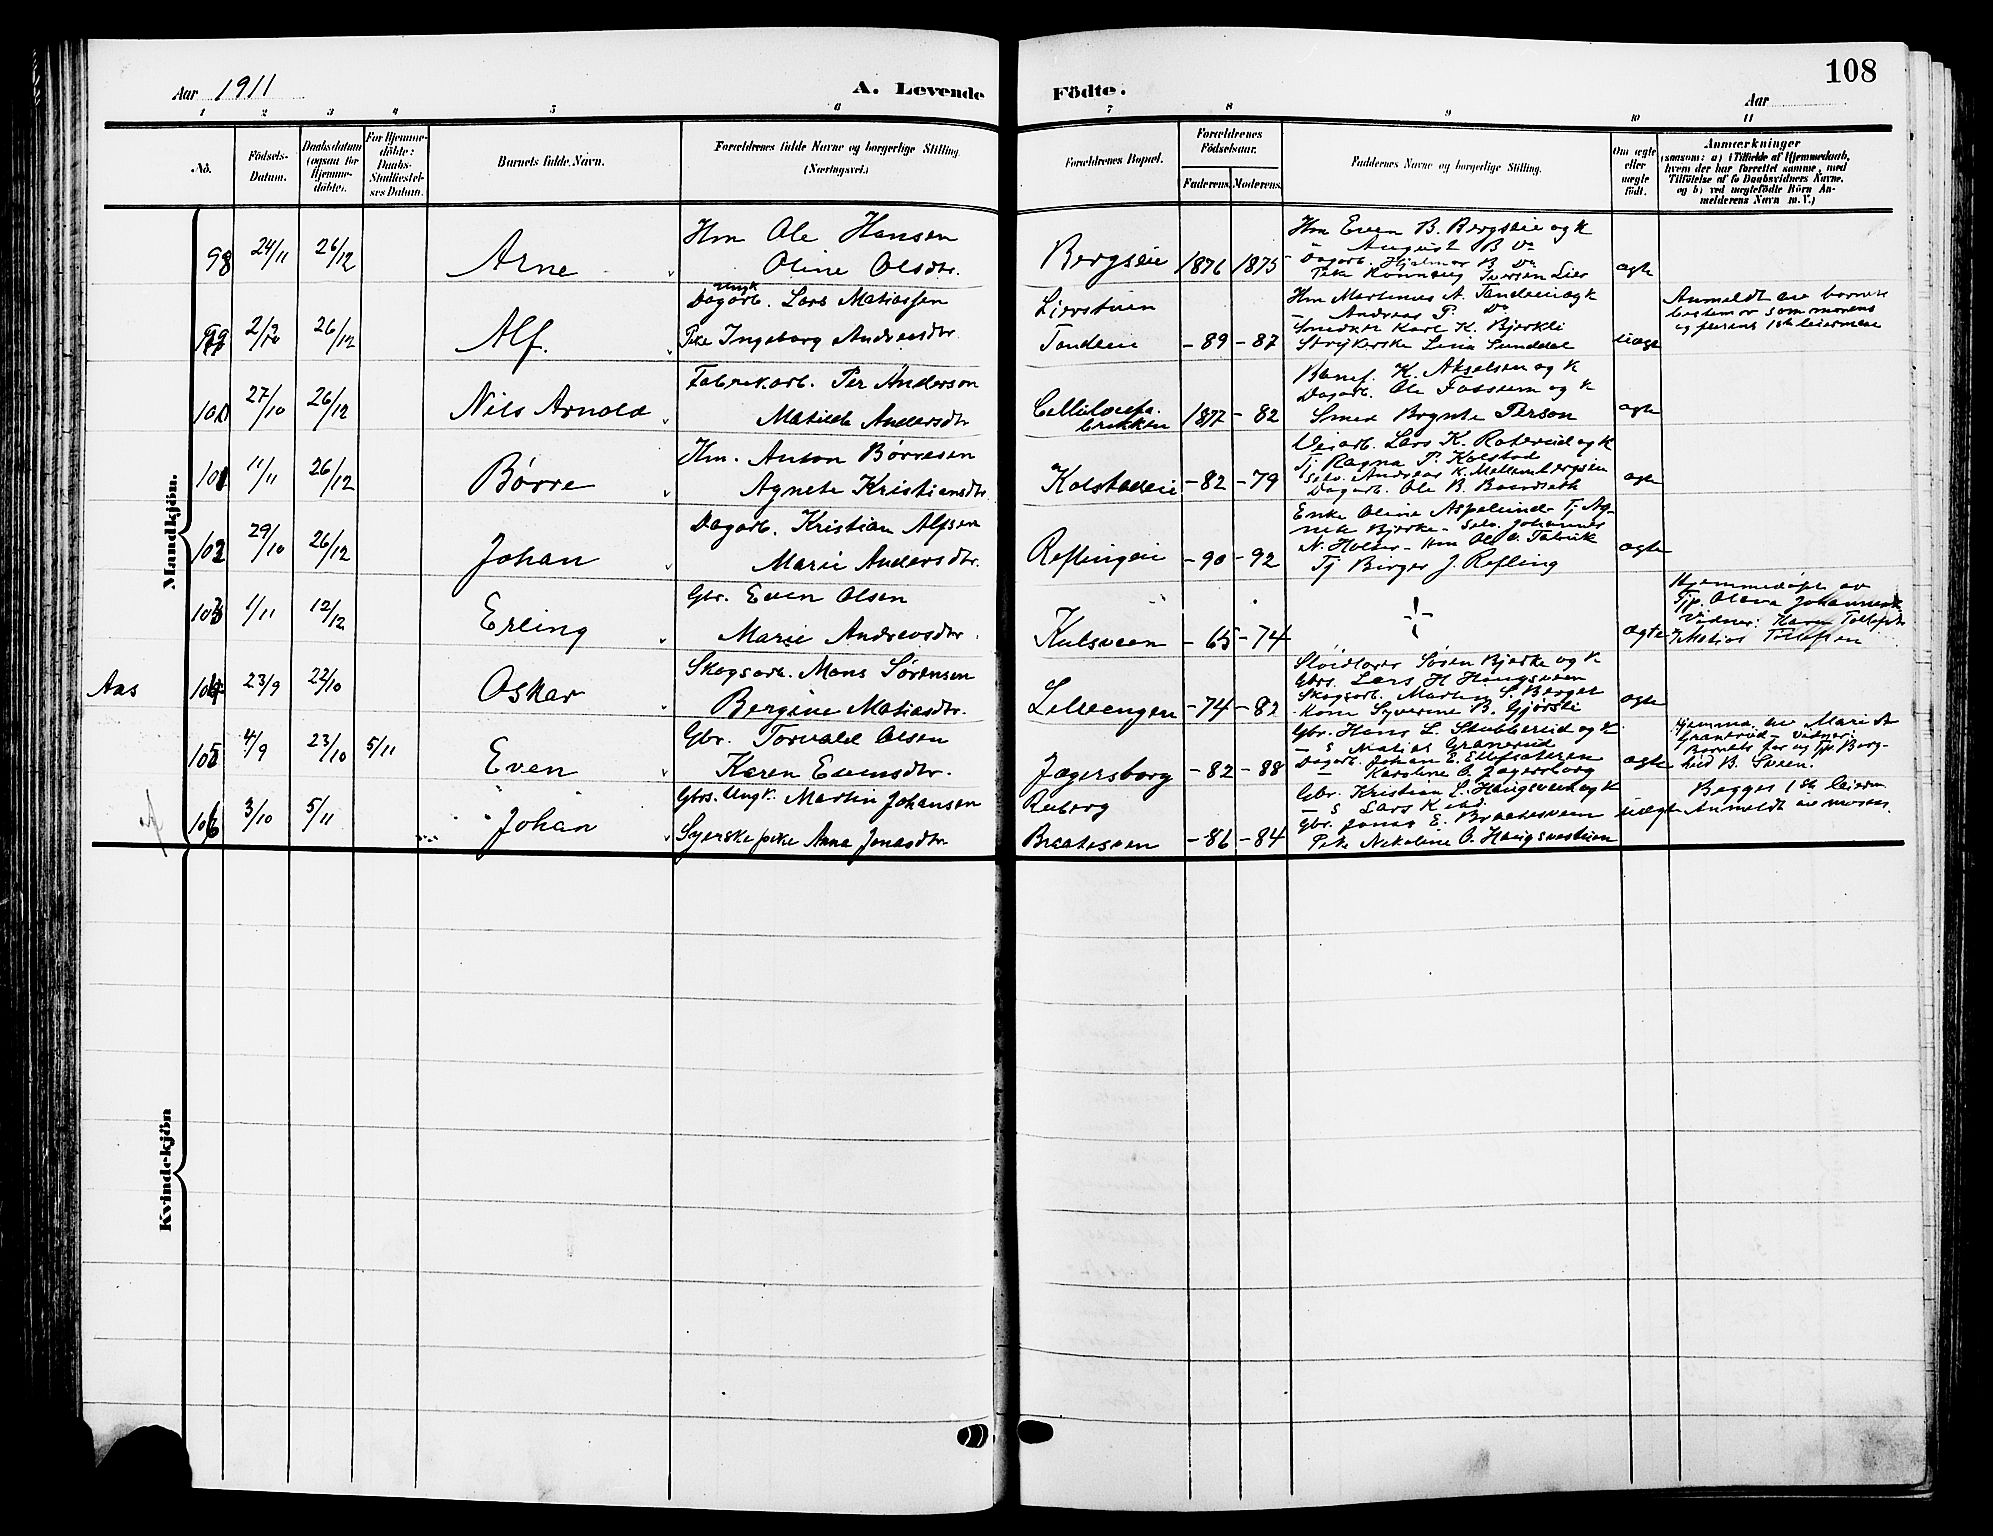 108
Aar 1911
A. Levende Födte.
Aar
1 2 3 4 5 6 7 8 9 10 11
No.
Födsels-Datum.
Daabsdatum (ogsaa for Hjemmedöbte).
For Hjemmedöbte: Daabs-Stadfæstelses Datum.
Barnets fulde Navn.
Forældrenes fulde Navne og borgerlige Stilling. (Næringsvei.)
Forældrenes Bopæl.
Forældrenes Födselsaar.
Faderens. Moderens.
Faddernes Navne og borgerlige Stilling.
Om ægte eller uægte födt.
Anmærkninger
(saasom: a) i Tilfælde af Hjemmedaab,
hvem der har forrettet samme, med
Tilföielse af to Daabsvidners Navne,
og b) ved uægtefödte Börn Anmelderens Navn m. V.)
Mandkjön.
98 24/11 26/12 Arne
Hm Ole Hansen
Oline Olsdtr.
Bergseie 1876 1875
Hm Even B. Bergseie og k
" August B Do
Dagarb. Hjalmar B. Do
Pike Rønnaug Iversen Lier
ægte
99 2/12 26/12 Alf.
Ungk
Dagarb. Lars Matiassen
Pike Ingeborg Andreasdtr.
Lierstuen
Tandeie - 89 - 87
Hm Martinus A. Tandeie og k
- Andreas P. Do
Smedmr Karl K. Bjerkli
Strykerske Lina Sunddal
uægte
Anmeldt av barnets
bestemor som morens
og farens 1ste leiermaal
100 27/10 26/12 Nils Arnold
Fabrikarb. Per Anderson
Matilde Andersdtr
Cellulosefabrikken 1877 - 82
Banef. K. Akselsen og k
Dagarb. Ole Fossum og k
Smed Brynte Person
ægte
101 11/11 26/12 Børre
Hm. Anton Børresen
Agnete Kristiansdtr.
Kolstadeie - 82 - 79
Veiarb. Lars K. Roterud og k
Tj Ragna P. Kolstad
Selv. Andreas K. Mellembergseie
Dagarb. Ole B. Baardseth
ægte
102 29/10 26/12 Johan
Dagarb. Kristian Alfsen
Marie Andersdtr.
Reflingeie - 90 - 92
Enke Oline Aspelund - Tj Agnete Bjerke - Selv. Johannes
N. Holter - Hm Ole O. Fabrik
Tj Birger J. Refling
ægte
103 1/11 12/12 Erling
Gbr. Even Olsen
Marie Andreasdtr.
Kulsveen - 65 - 74
ægte
Hjemmedøpt av
Tjp. Olava Johannesdtr.
Vidner: Karen Tollefsdtr
Matias Tollefsen
Aas
104 23/9 22/10 Oskar
Skogsarb. Mons Sørensen
Bergine Matiasdtr.
Lilleengen - 74 - 82
Sløidlærer Søren Bjerke og k
Gbrs. Lars H Haugsveen
Skogsarb. Martin S. Berget
Kone Syverine B. Gjørsli
ægte
105 4/9 23/10 5/11 Even
Gbr. Torvald Olsen
Karen Evensdtr.
Jægersborg - 82 - 88
Gbr. Hans L. Stubberud og k
- s Matias Granerud
Dagarb. Johan E. Ellefsæteren
- Karoline O. Jægersborg
ægte
Hjemmed. av Mari A
Granerud - Vidner:
Barnets far og Tjp. Borghild B. Skeen.
106 3/10 5/11 Johan
Gbrs. Ungk. Martin Johansen
Syerske pike Anna Jonasdtr
Raborg
Braatesveen - 86 - 84
Gbr. Kristian L. Haugsveen og k
- s Lars K ibid.
Gbr. Jonas E. Braatesveen
Pike Nikoline O. Haugsvestuen
uægte
Begges 1ste leierm
Anmeldt av moren.
Kvindekjön